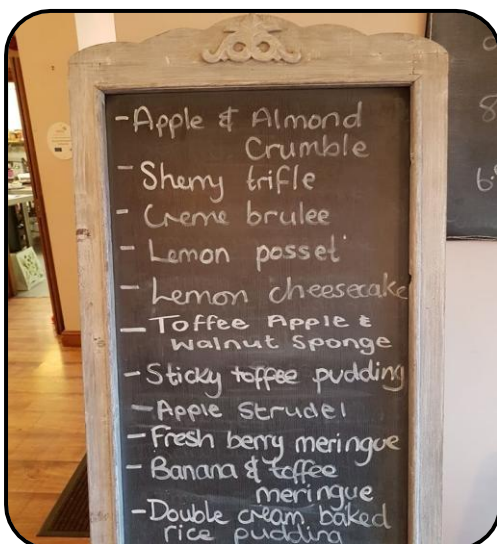 -Apple & Almond
Crumble
- Sherry trifle
- Creme brulee
- Lemon posset
- Lemon cheesecake
- Toffee Apple &
walnut sponge
- Sticky toffee pudding
- Apple strudel
- Fresh berry meringue
- Banana & toffee
meringue
- Double cream baked
rice pudding